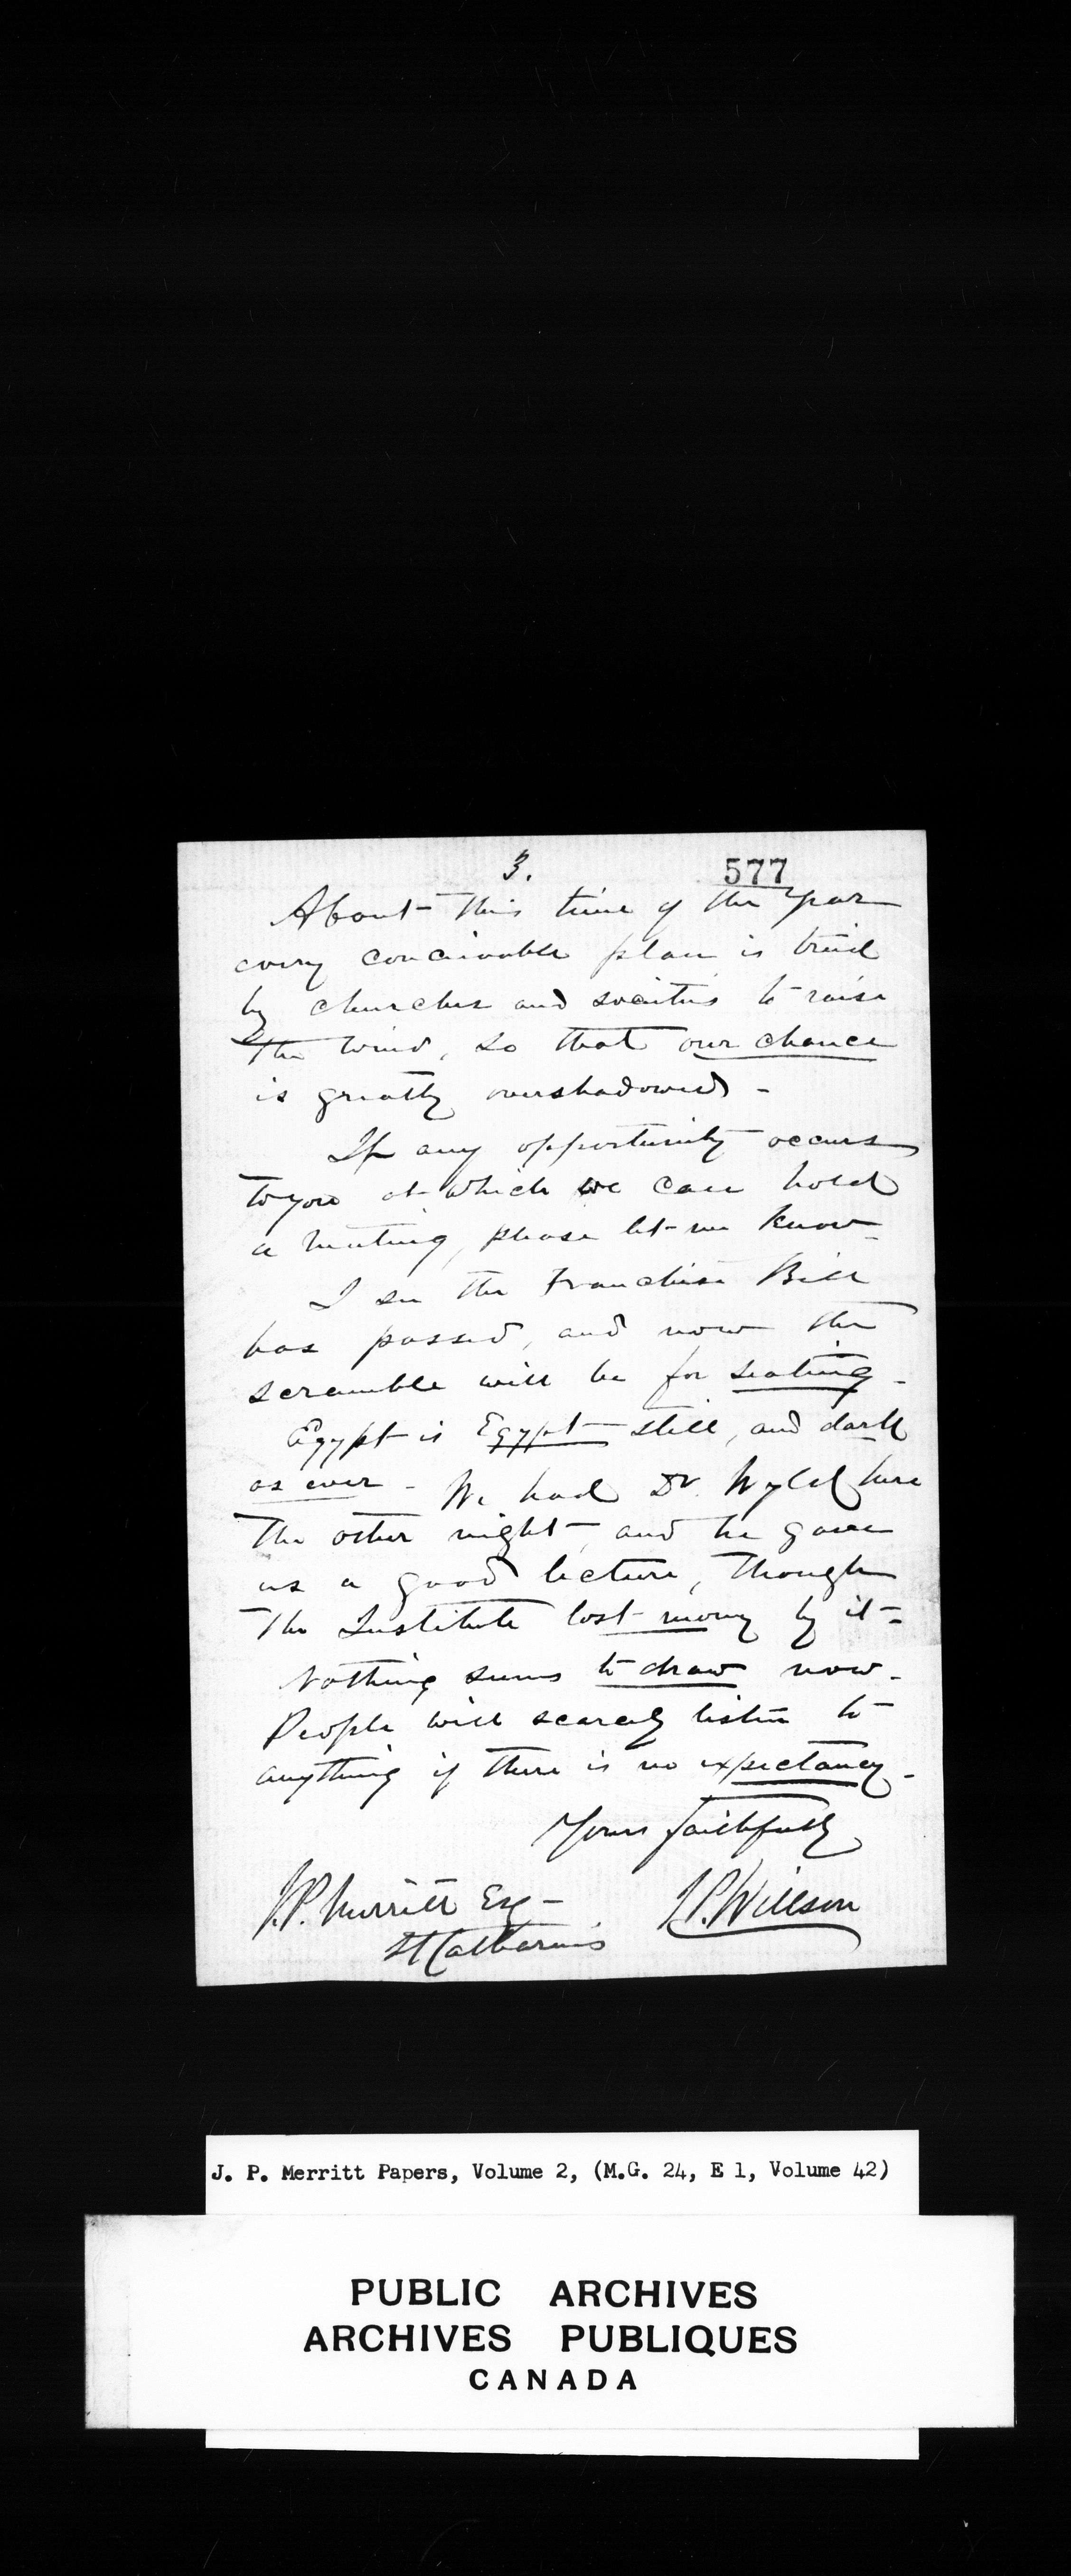 3.
577
About this time of the year
every conceivable plan is tried
by churches and societies to raise
the wind, so that our chance
is greatly overshadowed -
If any opportunity occurs
to you at which we can hold
a meeting, please let me know -
I see the Franchise Bill
has passed, and now the
scramble will be for seating -
Egypt is Egypt still, and dark
as ever - We had Dr. Wyld here
the other night, and he gave
us a good lecture, though
the Institute lost money by it -
Nothing seems to draw now -
People will scarcely listen to
anything if there is no expectancy -
Yours faithfully
J.P. Merritt Esq -
St Catharines
Willson
J. P. Merritt Papers, Volume 2, (M.G. 24, E 1, Volume 42)
PUBLIC ARCHIVES
ARCHIVES PUBLIQUES
CANADA